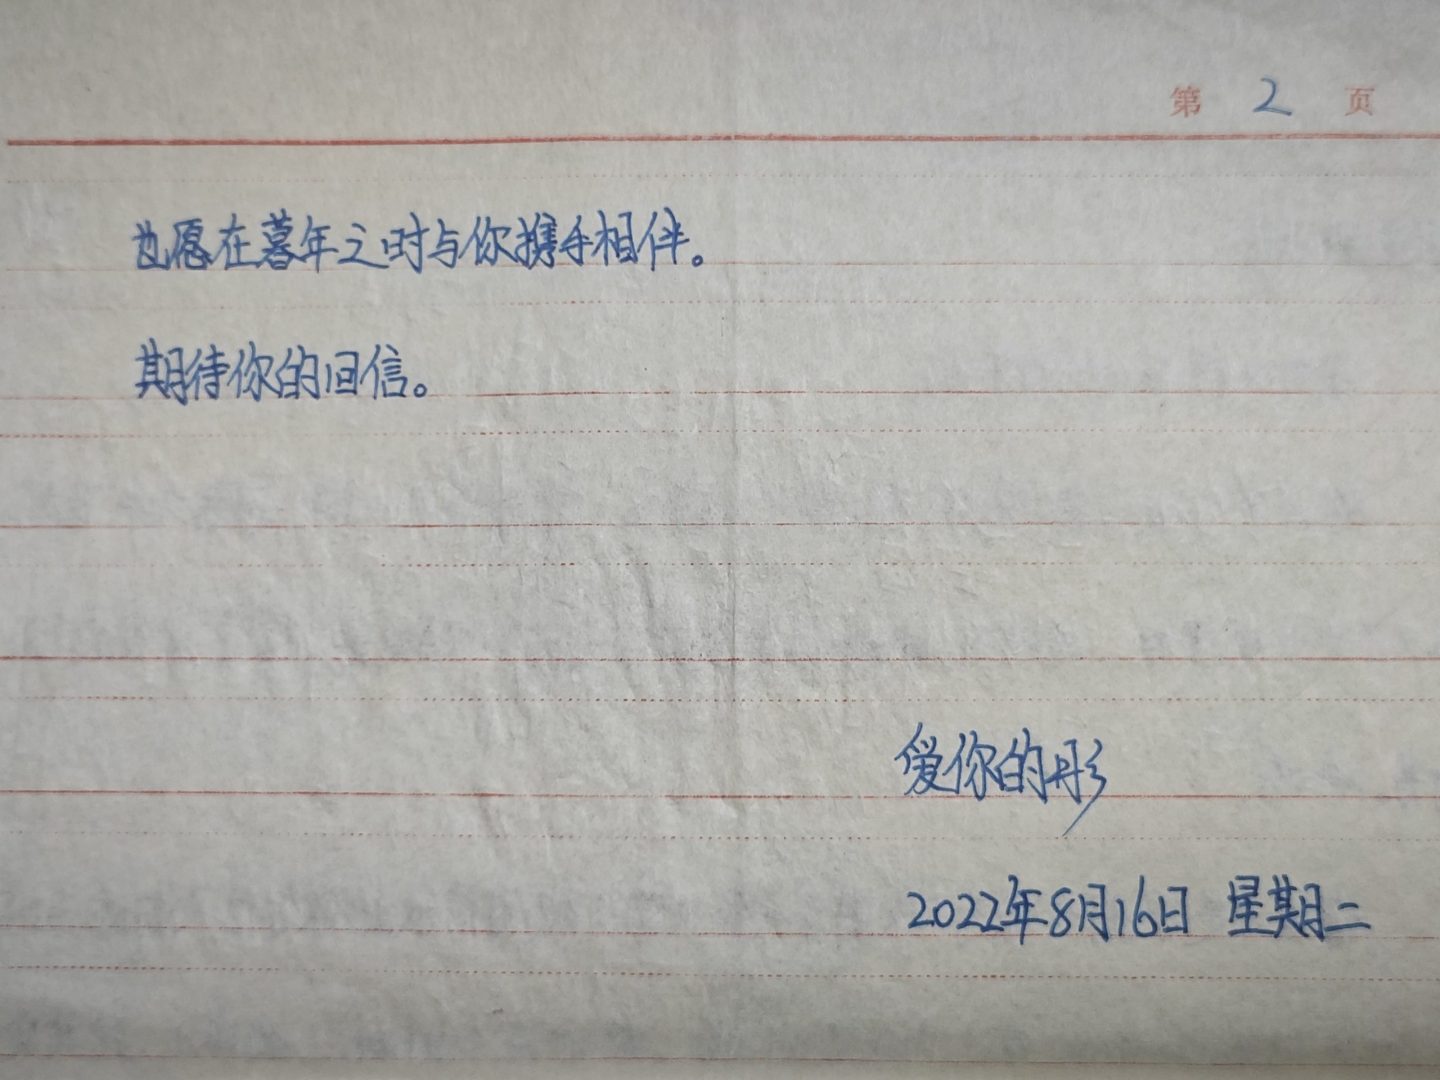 第 2 页
也愿在暮年之时与你携手相伴。
期待你的回信。
爱你的彤
2022年8月16日 星期二